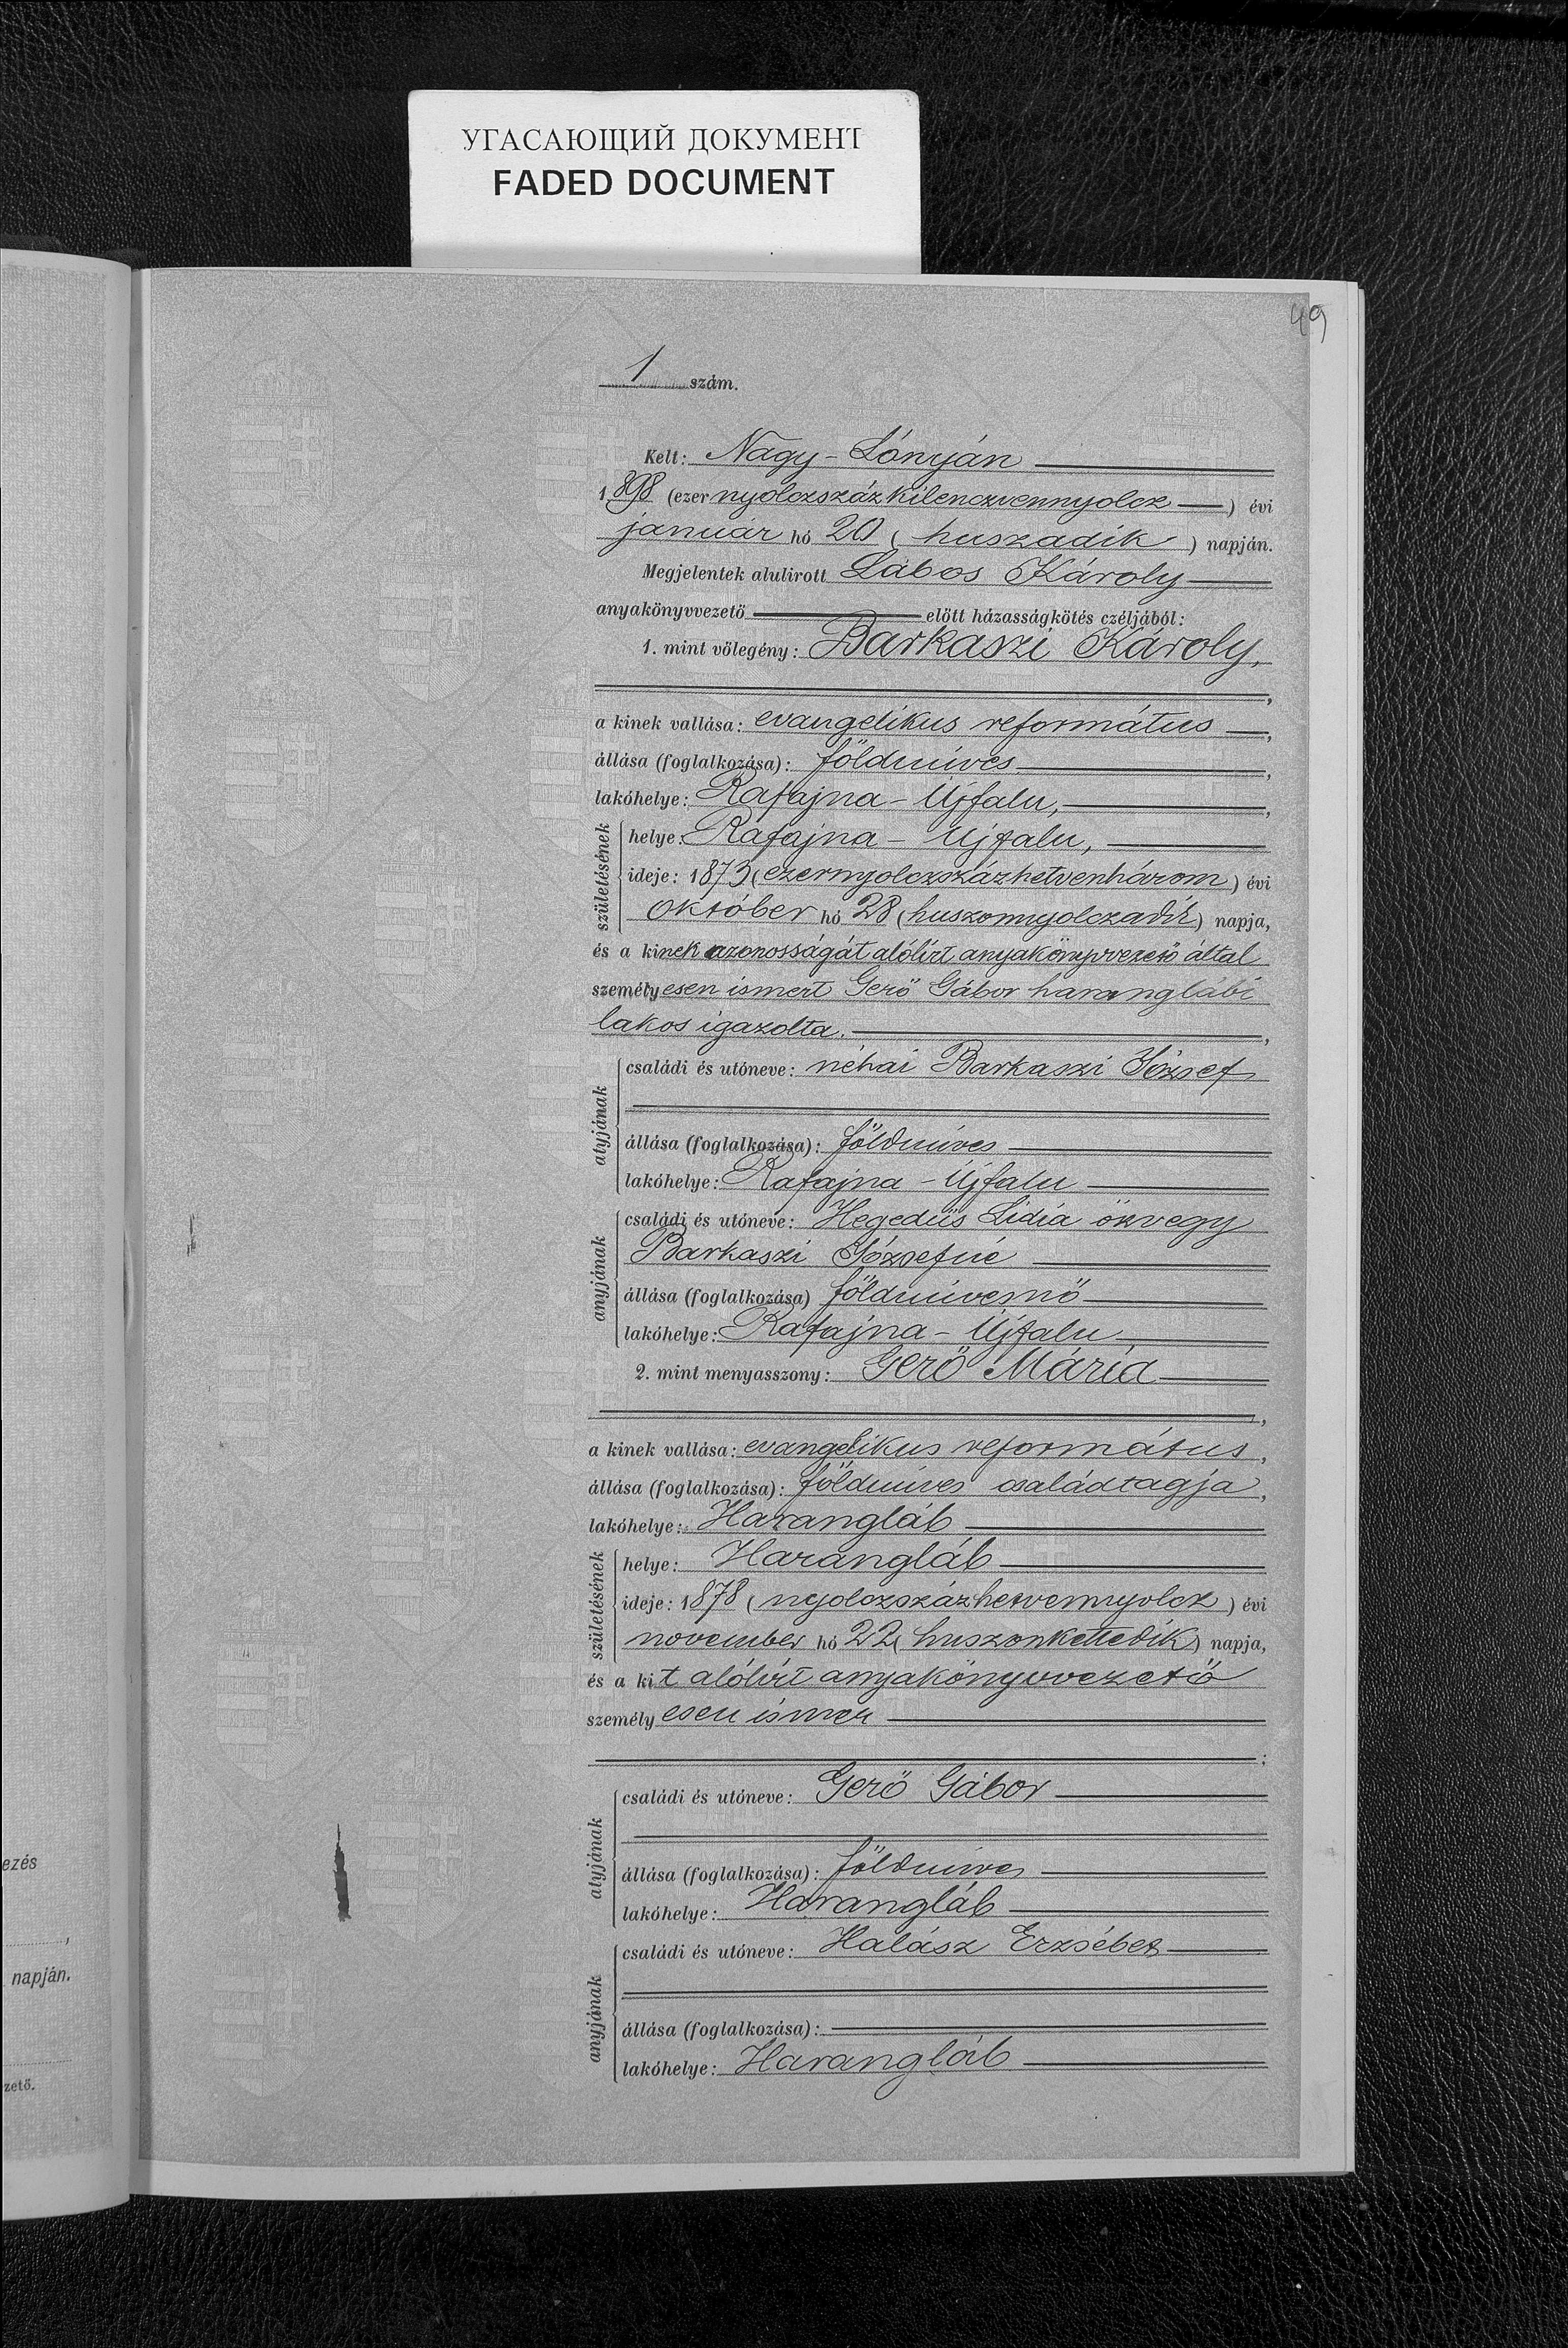 УГАСАЮЩИЙ ДОКУМЕНТ
FADED DOCUMENT
49
1 szám.
Kelt: Nagy-Lónyán
1898 (ezer nyolczszázkilenczvennyolcz) évi
január hó 20 (huszadik) napján.
Megjelentek alulirott Lábos Károly
anyakönyvvezető előtt házasságkötés czéljából:
1. mint vőlegény: Barkaszi Károly,
,
a kinek vallása: evangelikus református,
állása (foglalkozása): földmíves,
lakóhelye: Rafajna-Újfalu,
születésének
helye: Rafajna-Újfalu,
ideje: 1873 (ezernyolczszázhetvenhárom) évi
október hó 28 (huszonnyolczadik) napja,
és a kinek azonosságát alólírt anyakönyvvezető által
személyesen ismert Gerő Gábor haranglábi
lakos igazolta.,
atyjának
családi és utóneve: néhai Barkaszi József
állása (foglalkozása): földmíves
lakóhelye: Rafajna-Újfalu
anyjának
családi és utóneve: Hegedüs Lidia özvegy
Barkaszi Józsefné
állása (foglalkozása) földmívesnő
lakóhelye: Rafajna-Újfalu,
2. mint menyasszony: Gerő Mária
,
a kinek vallása: evangelikus református,
állása (foglalkozása): földmíves családtagja,
lakóhelye: Harangláb
születésének
helye: Harangláb
ideje: 1878 (nyolczszázhetvennyolcz) évi
november hó 22 (huszonkettedik) napja,
és a kit alólírt anyakönyvvezető
személyesen ismer
;
atyjának
családi és utóneve: Gerő Gábor
állása (foglalkozása): földmíves
lakóhelye: Harangláb
anyjának
családi és utóneve: Halász Erzsébet
állása (foglalkozása):
lakóhelye: Harangláb
ezés
,
napján.
zető.